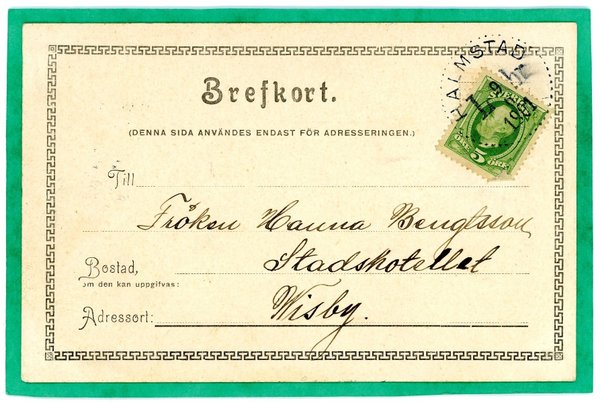 HALMSTAD
1901
5 ÖRE
Brefkort.
(DENNA SIDA ANVÄNDES ENDAST FÖR ADRESSERINGEN.)
Till
Fröken Hanna Bengtsson
Bostad, Stadshotellet
om den kan uppgifvas:
Adressort: Wisby.